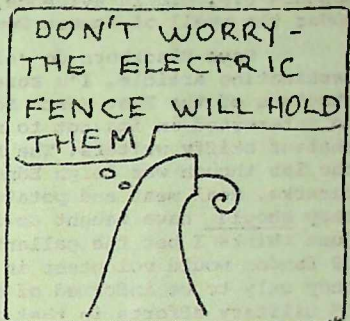 DON'T WORRY -
THE ELECTRIC
FENCE WILL HOLD
THEM